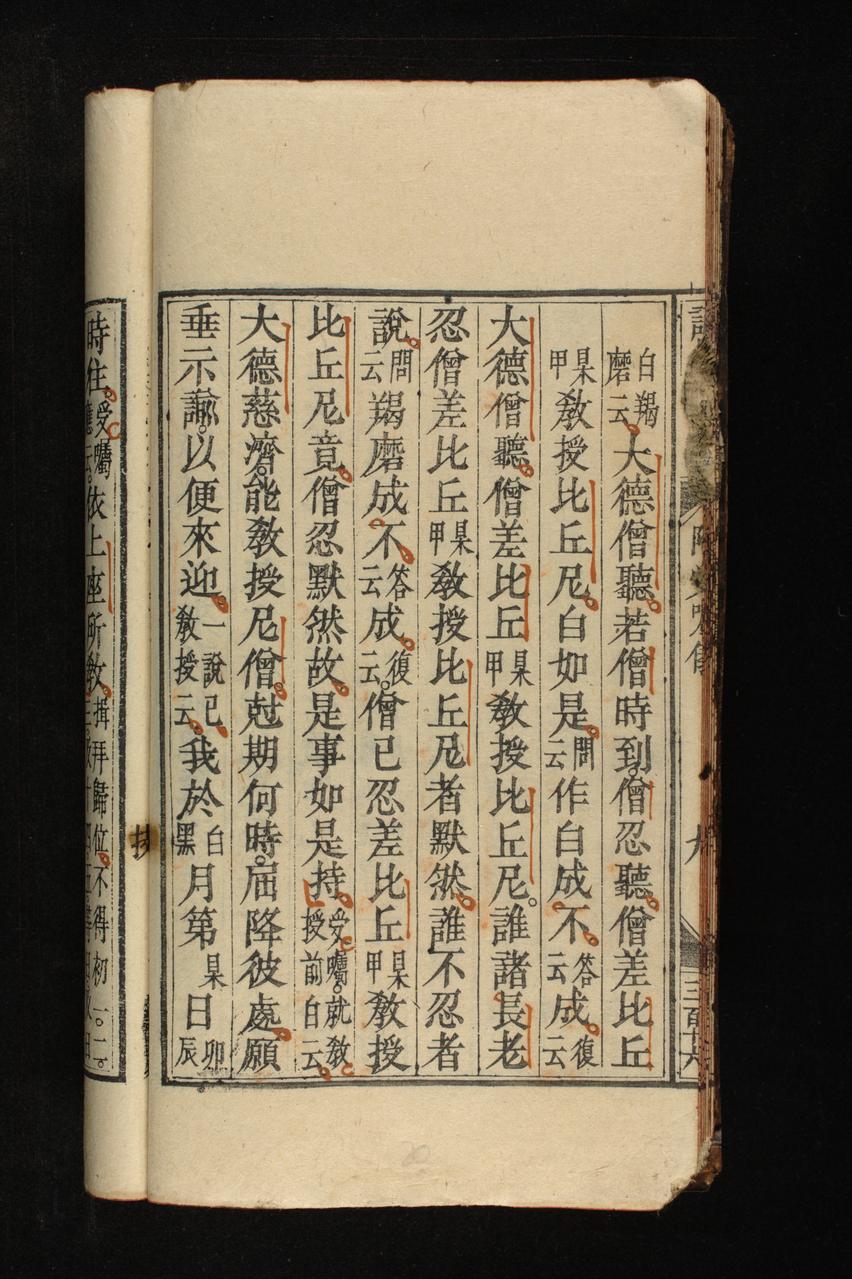 三百十六
白羯磨云大德僧聽若僧時到僧忍聽僧差比丘
杲甲教授比丘尼白如是問云作白成不答云成復云
大德僧聽僧差比丘杲甲教授比丘尼誰諸長老
忍僧差比丘杲甲教授比丘尼者默然誰不忍者
說問云羯磨成不答云成復云僧已忍差比丘杲甲教授
比丘尼竟僧忍默然故是事如是持受囑就教授前白云
大德慈濟能教授尼僧尅期何時屆降彼處願
垂示諭以便來迎一說已教授云我於白黑月第杲日卯辰
扙
時往受囑應云依上座所教揖拜歸位不得初一二